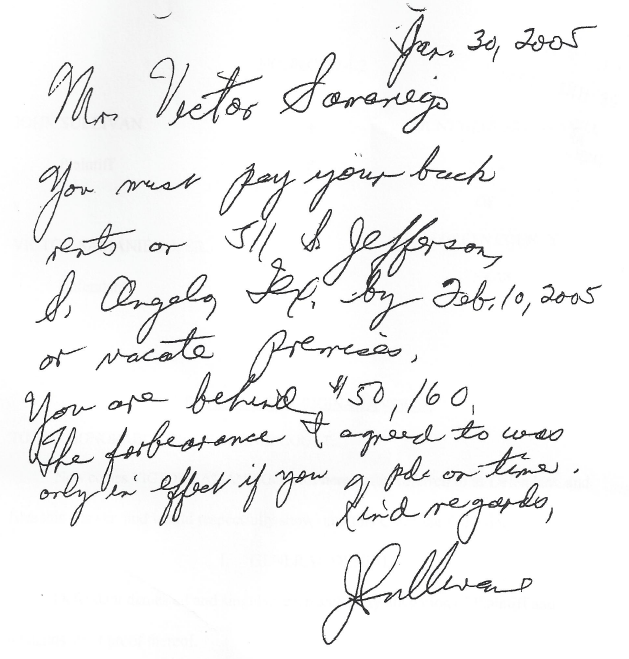 Jan. 30, 2005
Mr. Victor Samaniego
You must pay your back
rents or 511 S. Jefferson,
S. Angelo, Tex. by Feb. 10, 2005
or vacate premises.
You are behind $50,160.
The forbearance I agreed to was
only in effect if you pd. on time.
Kind regards,
JSullivan